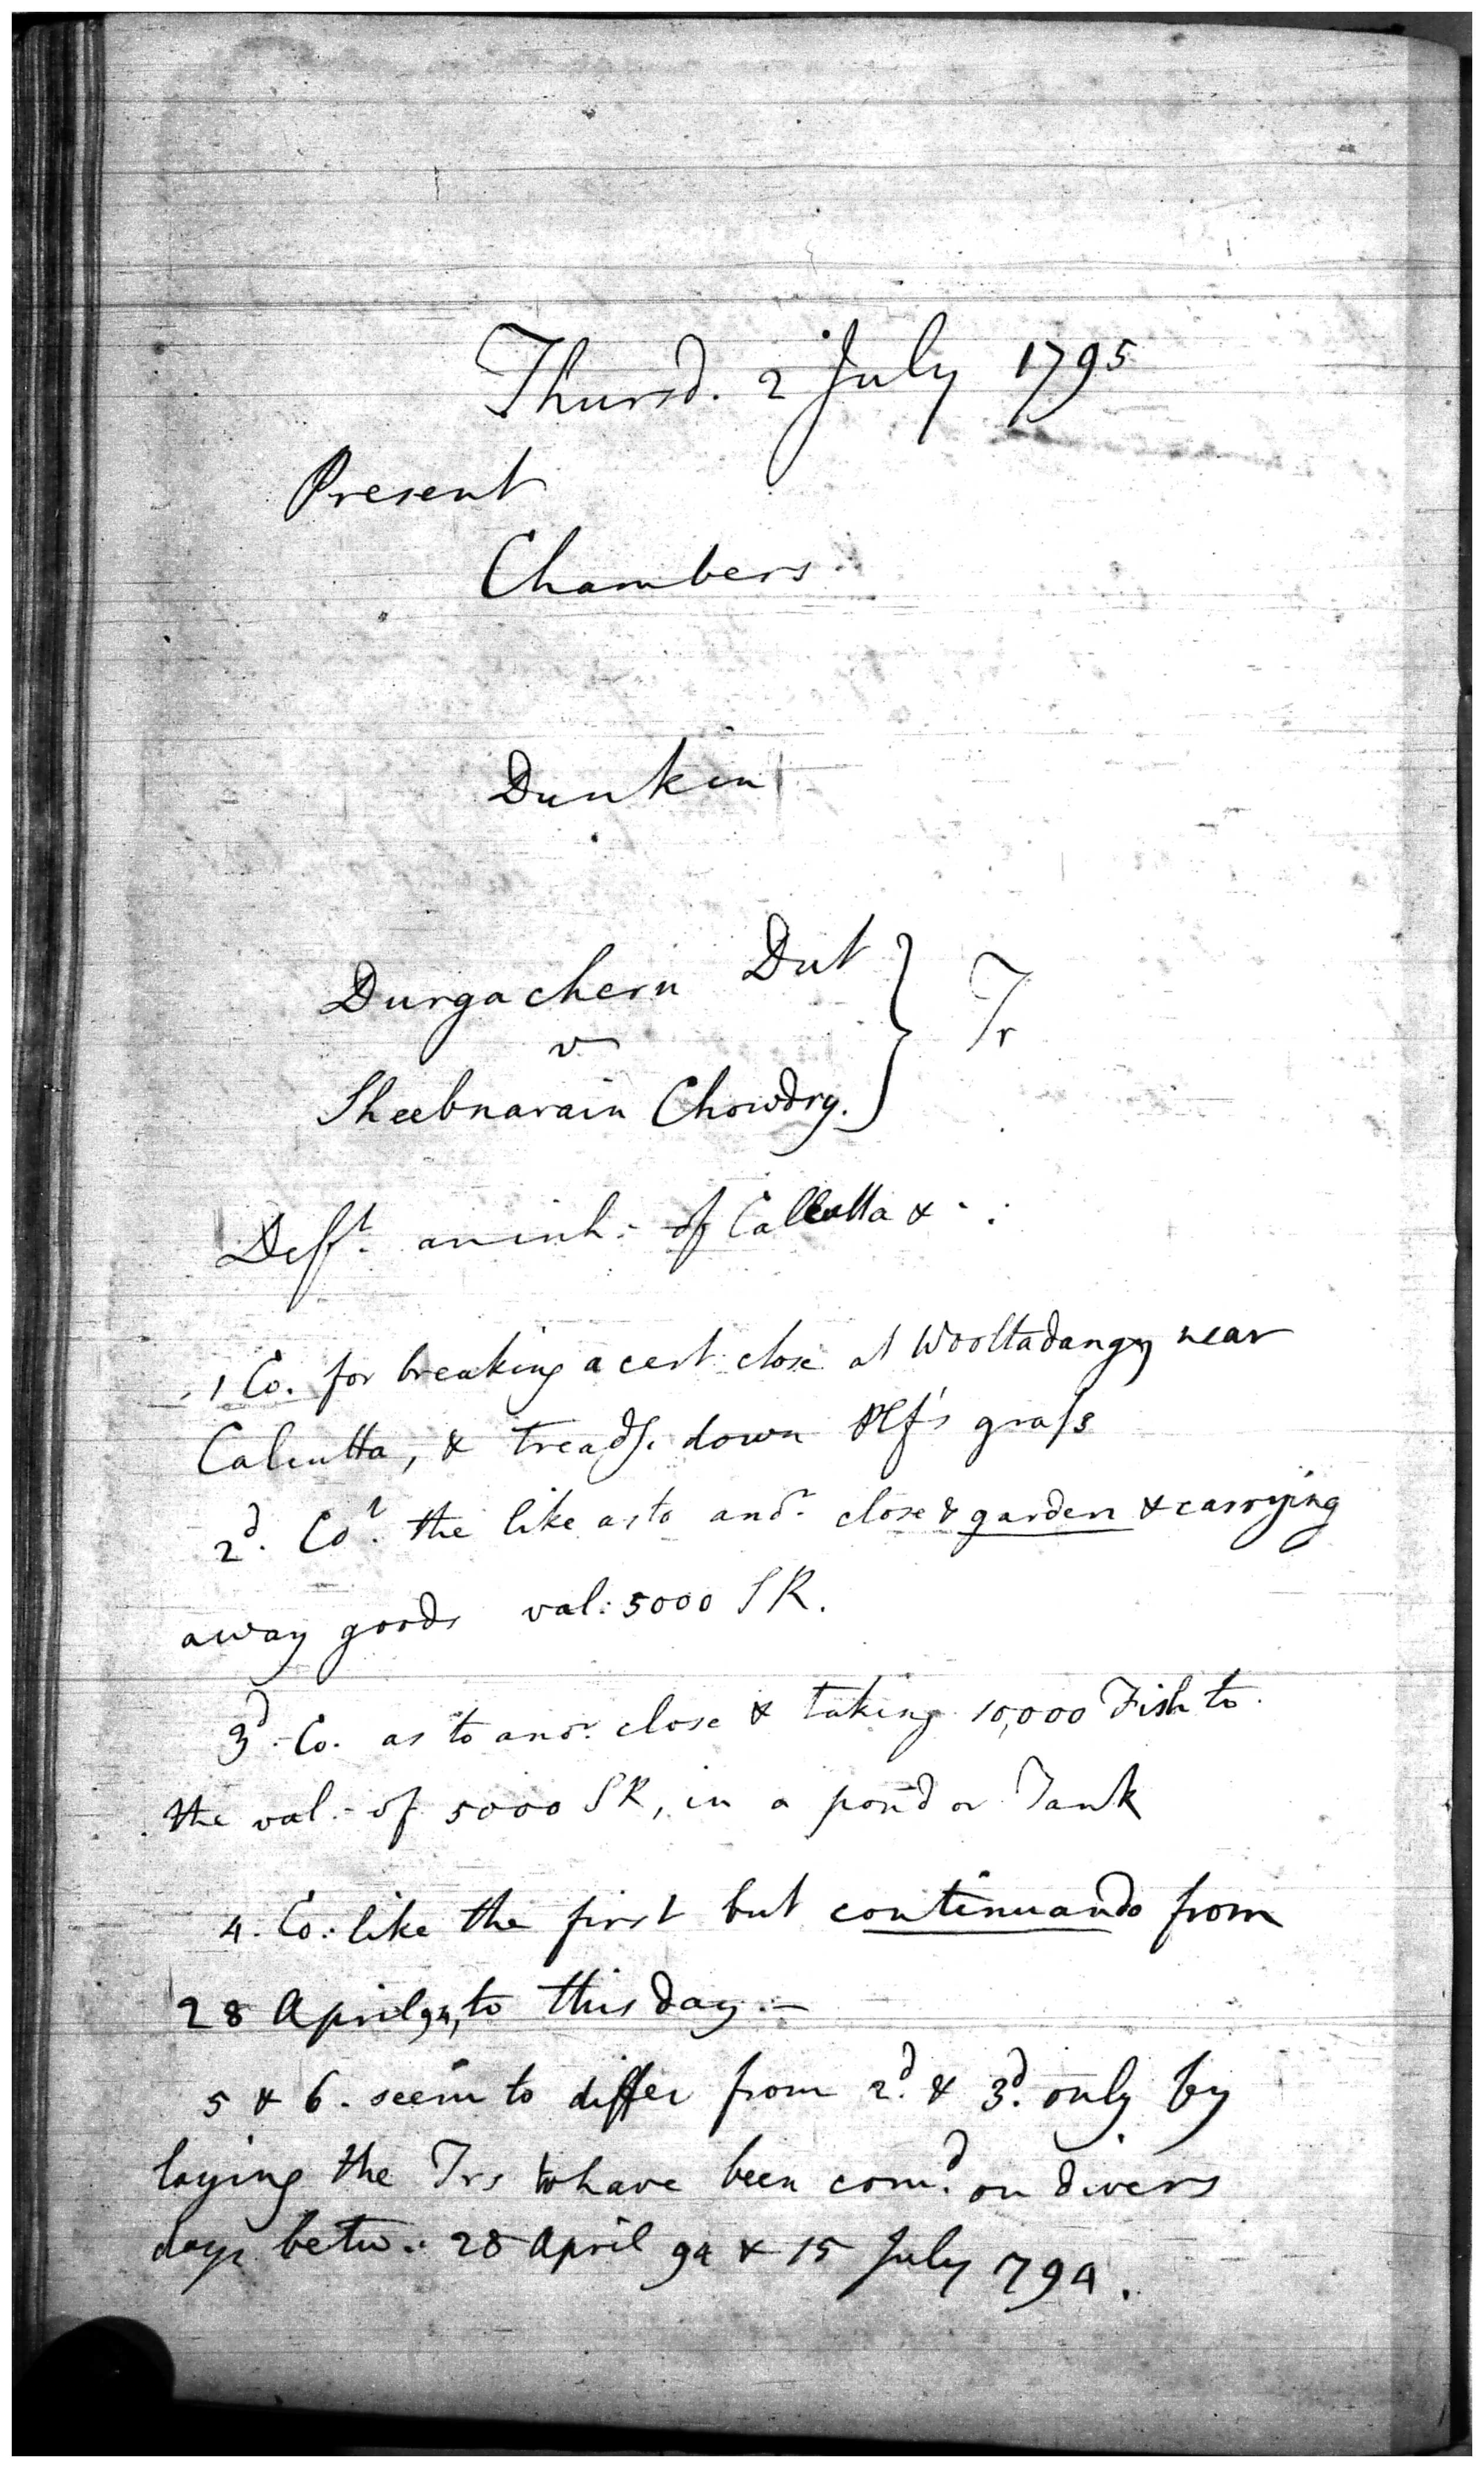 Thursd. 2 July 1795
Present
Chambers
Dunkin
Durgachern Dut
v
Sheebnarain Chowdry. } Tr
Deft. an inh: of Calcutta &
1 Co. for breaking a cert: close at Wooltadangy near
Calcutta, & treadg. down Plf's grass
2d. Cot. the like as to anor. close & garden & carrying
away goods val: 5000 SR.
3d. Co. as to anor. close & taking 10,000 Fish to
the val: of 5000 SR, in a pond or Tank
4. Co: like the first but continuando from
28 April 94, to this day.—
5 & 6. seem to differ from 2d. & 3d. only by
laying the Trs to have been comd. on divers
days betw: 28 April 94 & 15 July 794.